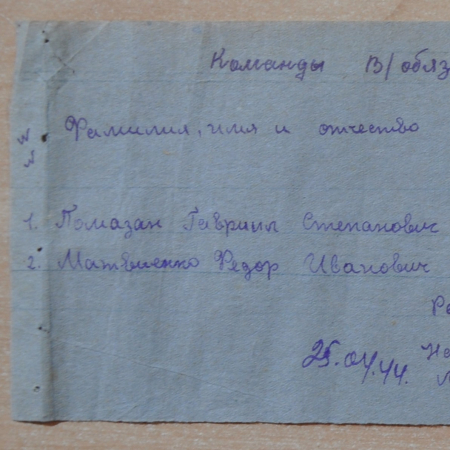 Команды В/обяз
№ № Фамилия, имя и отчество
1. Помазан Гавриил Степанович
2. Матвиенко Федор Иванович
Ра
25.04.44. На